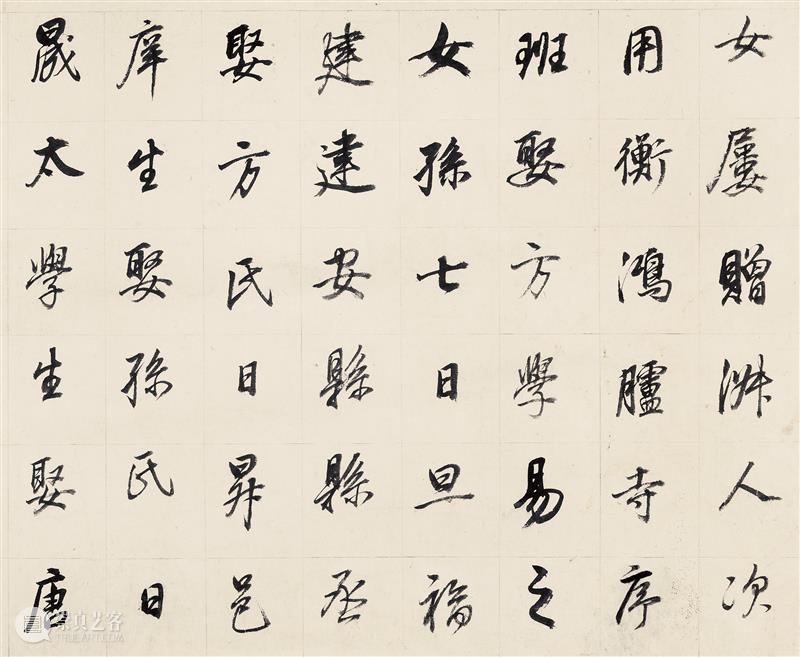 女屢贈淑人次
用衡鴻臚寺序
班娶方學易之
女孫七日旦福
建建安縣縣丞
娶方氏日昇邑
庠生娶孫氏日
晟太學生娶唐
崇真艺客
TRUEART.COM